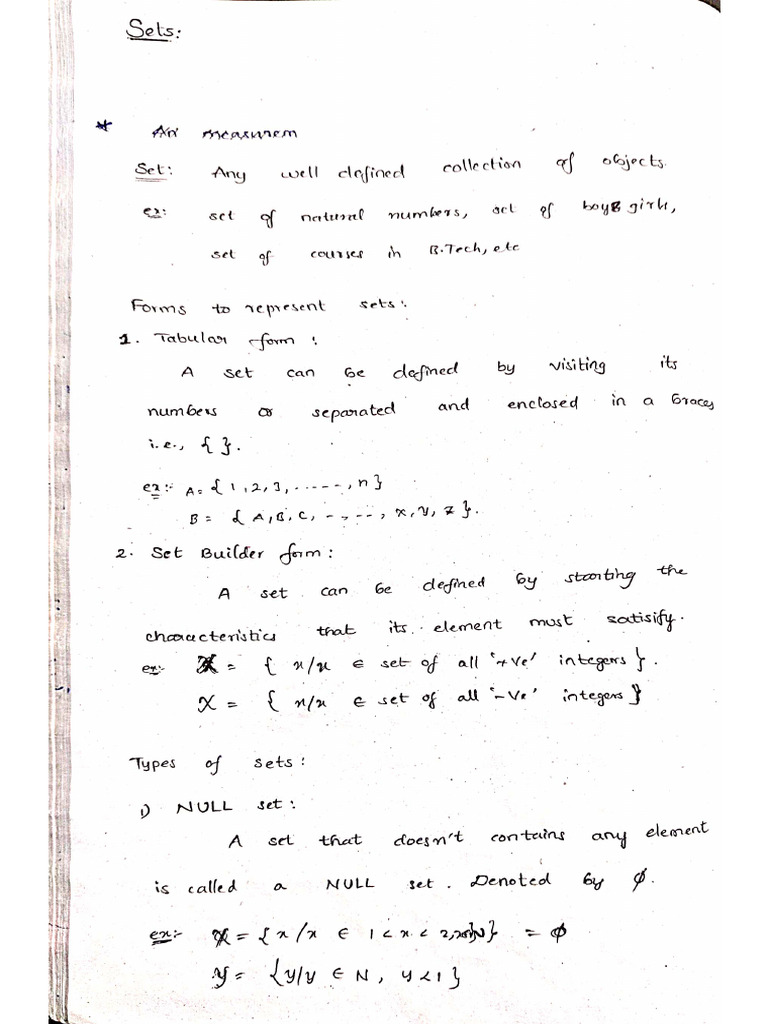 Sets:
* An measurem
Set: Any well defined collection of objects.
ex: set of natural numbers, set of boy& girls,
set of courses in B.Tech, etc
Forms to represent sets:
1. Tabular form :
A set can be defined by visiting its
numbers or separated and enclosed in a braces
i.e., { }.
ex:- A= {1,2,3,.....,n}
B = {A,B,C,.,..,x,y,z}.
2. Set Builder form:
A set can be defined by starting the
characteristics that its element must satisify.
ex:- X = { x/x ∈ set of all '+ve' integers}.
X = { x/x ∈ set of all '-ve' integers}
Types of sets:
1) NULL set:
A set that doesn't contains any element
is called a NULL set. Denoted by ϕ.
ex:- X = {x/x ∈ 1<x<2, N} = ϕ
Y = {y/y ∈ N, y<1}